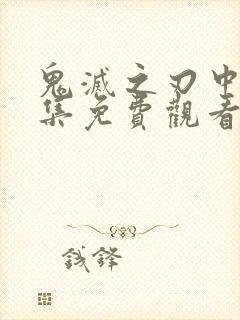 鬼滅之刃中
集免費觀看
錢鋒